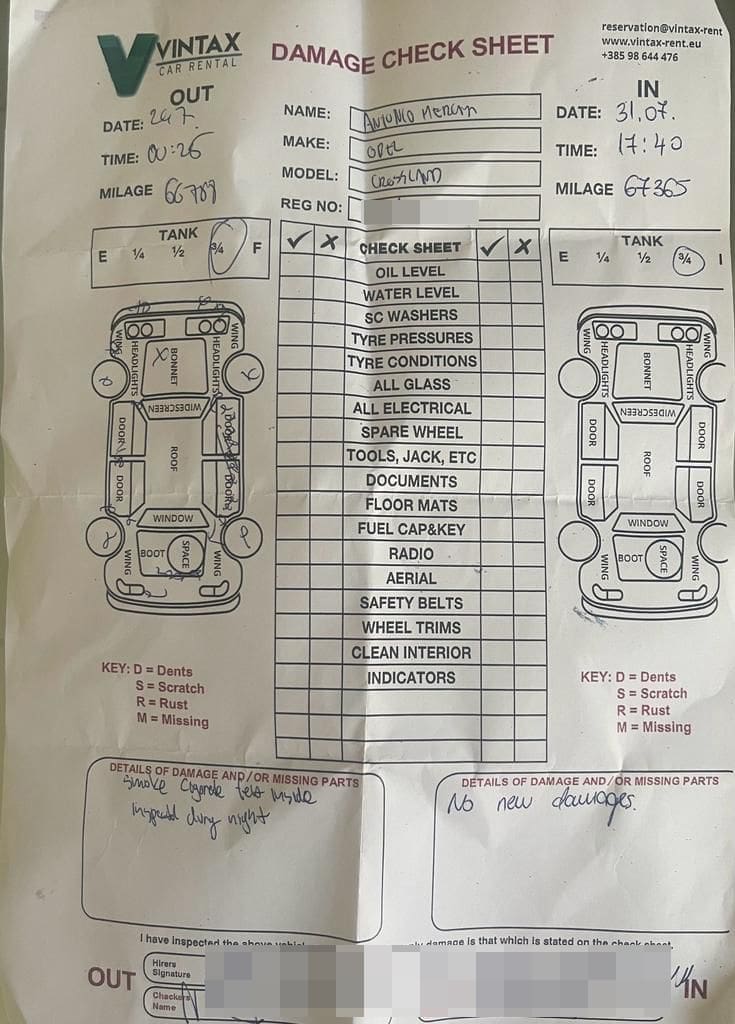 VINTAX
CAR RENTAL
DAMAGE CHECK SHEET
reservation@vintax-rent
www.vintax-rent.eu
+385 98 644 476
OUT
DATE: 24.7.
TIME: 00:26
MILAGE 66789
NAME: ANTONIO
MAKE: OPEL
MODEL: CROSSLAND
REG NO:
IN
DATE: 31.07.
TIME: 17:40
MILAGE 67365
TANK
E ¼ ½ ¾ F
✓ ✗ CHECK SHEET ✓ ✗
TANK
E ¼ ½ ¾
OIL LEVEL
WATER LEVEL
SC WASHERS
TYRE PRESSURES
TYRE CONDITIONS
ALL GLASS
ALL ELECTRICAL
SPARE WHEEL
TOOLS, JACK, ETC
DOCUMENTS
FLOOR MATS
FUEL CAP&KEY
RADIO
AERIAL
SAFETY BELTS
WHEEL TRIMS
CLEAN INTERIOR
INDICATORS
WING
HEADLIGHTS
BONNET
HEADLIGHTS
WING
WIDESCREEN
DOOR
ROOF
DOOR
DOOR
DOOR
WINDOW
WING
BOOT
SPACE
WING
WING
HEADLIGHTS
BONNET
HEADLIGHTS
WING
WIDESCREEN
DOOR
ROOF
DOOR
DOOR
DOOR
WINDOW
WING
BOOT
SPACE
WING
KEY: D = Dents
S = Scratch
R = Rust
M = Missing
KEY: D = Dents
S = Scratch
R = Rust
M = Missing
DETAILS OF DAMAGE AND/OR MISSING PARTS
Smoke Cigarete felt inside
Inspected during night
DETAILS OF DAMAGE AND/OR MISSING PARTS
No new damages.
I have inspected the above
damage is that which is stated on the check sheet.
OUT
Hirers
Signature
Checkers
Name
IN